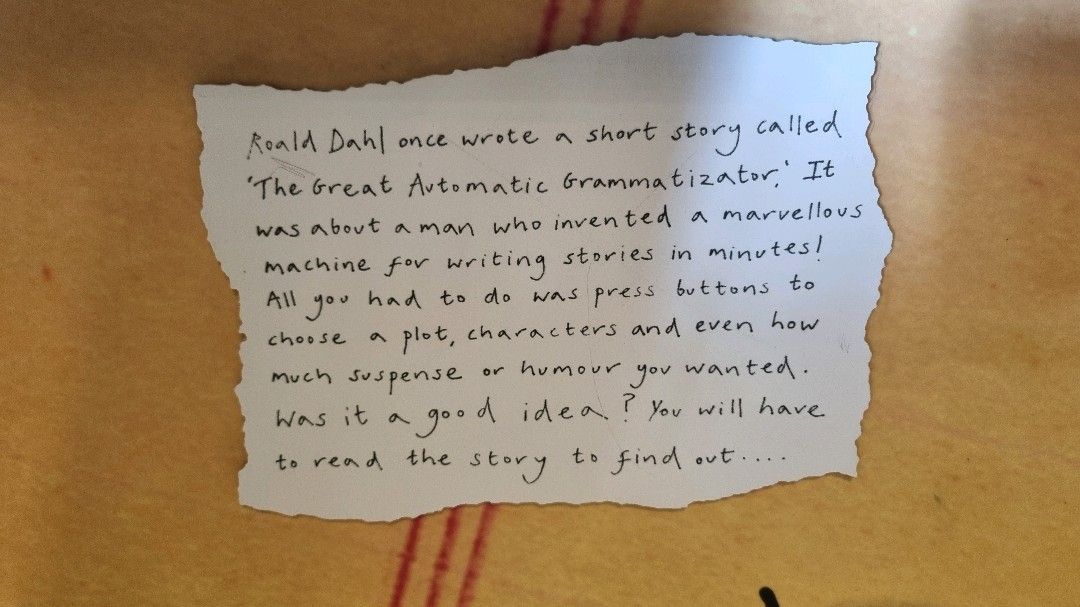 Roald Dahl once wrote a short story called
'The Great Automatic Grammatizator.' It
was about a man who invented a marvellous
machine for writing stories in minutes!
All you had to do was press buttons to
choose a plot, characters and even how
much suspense or humour you wanted.
Was it a good idea? You will have
to read the story to find out....